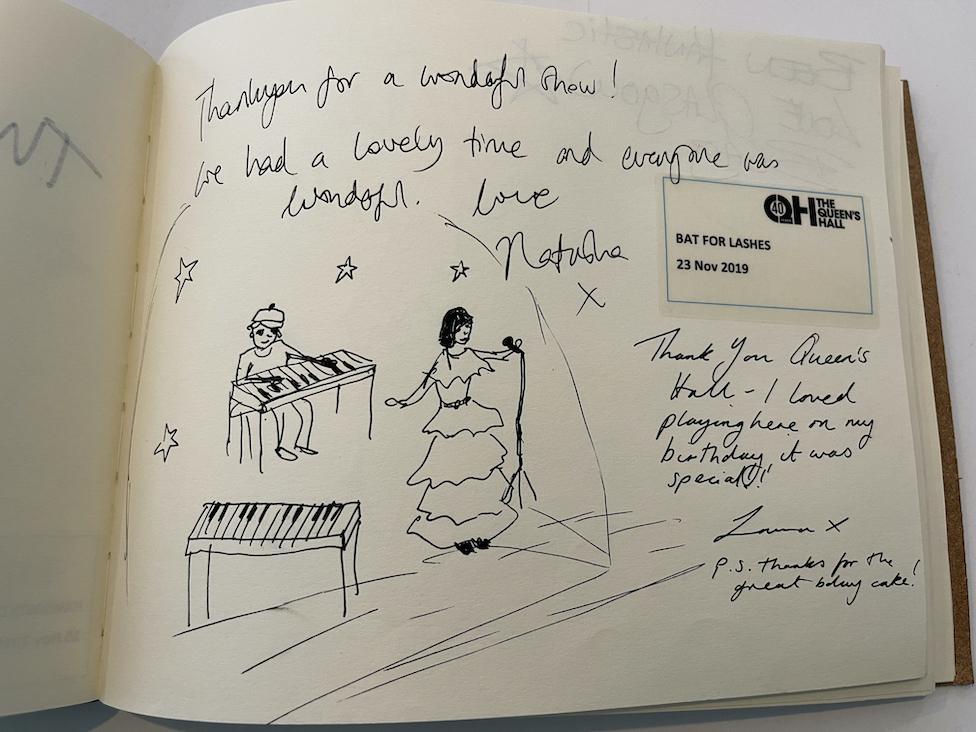 Thankyou for a wonderful show!
We had a lovely time and everyone was
wonderful. Love
Natasha
x
40
QH THE
QUEEN'S
HALL
BAT FOR LASHES
23 Nov 2019
Thank You Queen's
Hall - I loved
playing here on my
birthday it was
special!!
Laura x
P.S. thanks for the
great bday cake!